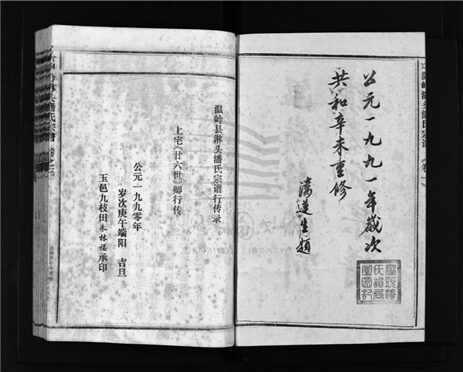 公元一九九一年歲次
共和辛未重修
潘蓮生題
温岭县淋头潘氏宗谱行传录
上宅(廿六世)卿行传
公元一九九〇年
岁次庚午端阳 吉旦
玉邑九枝田朱林福承印